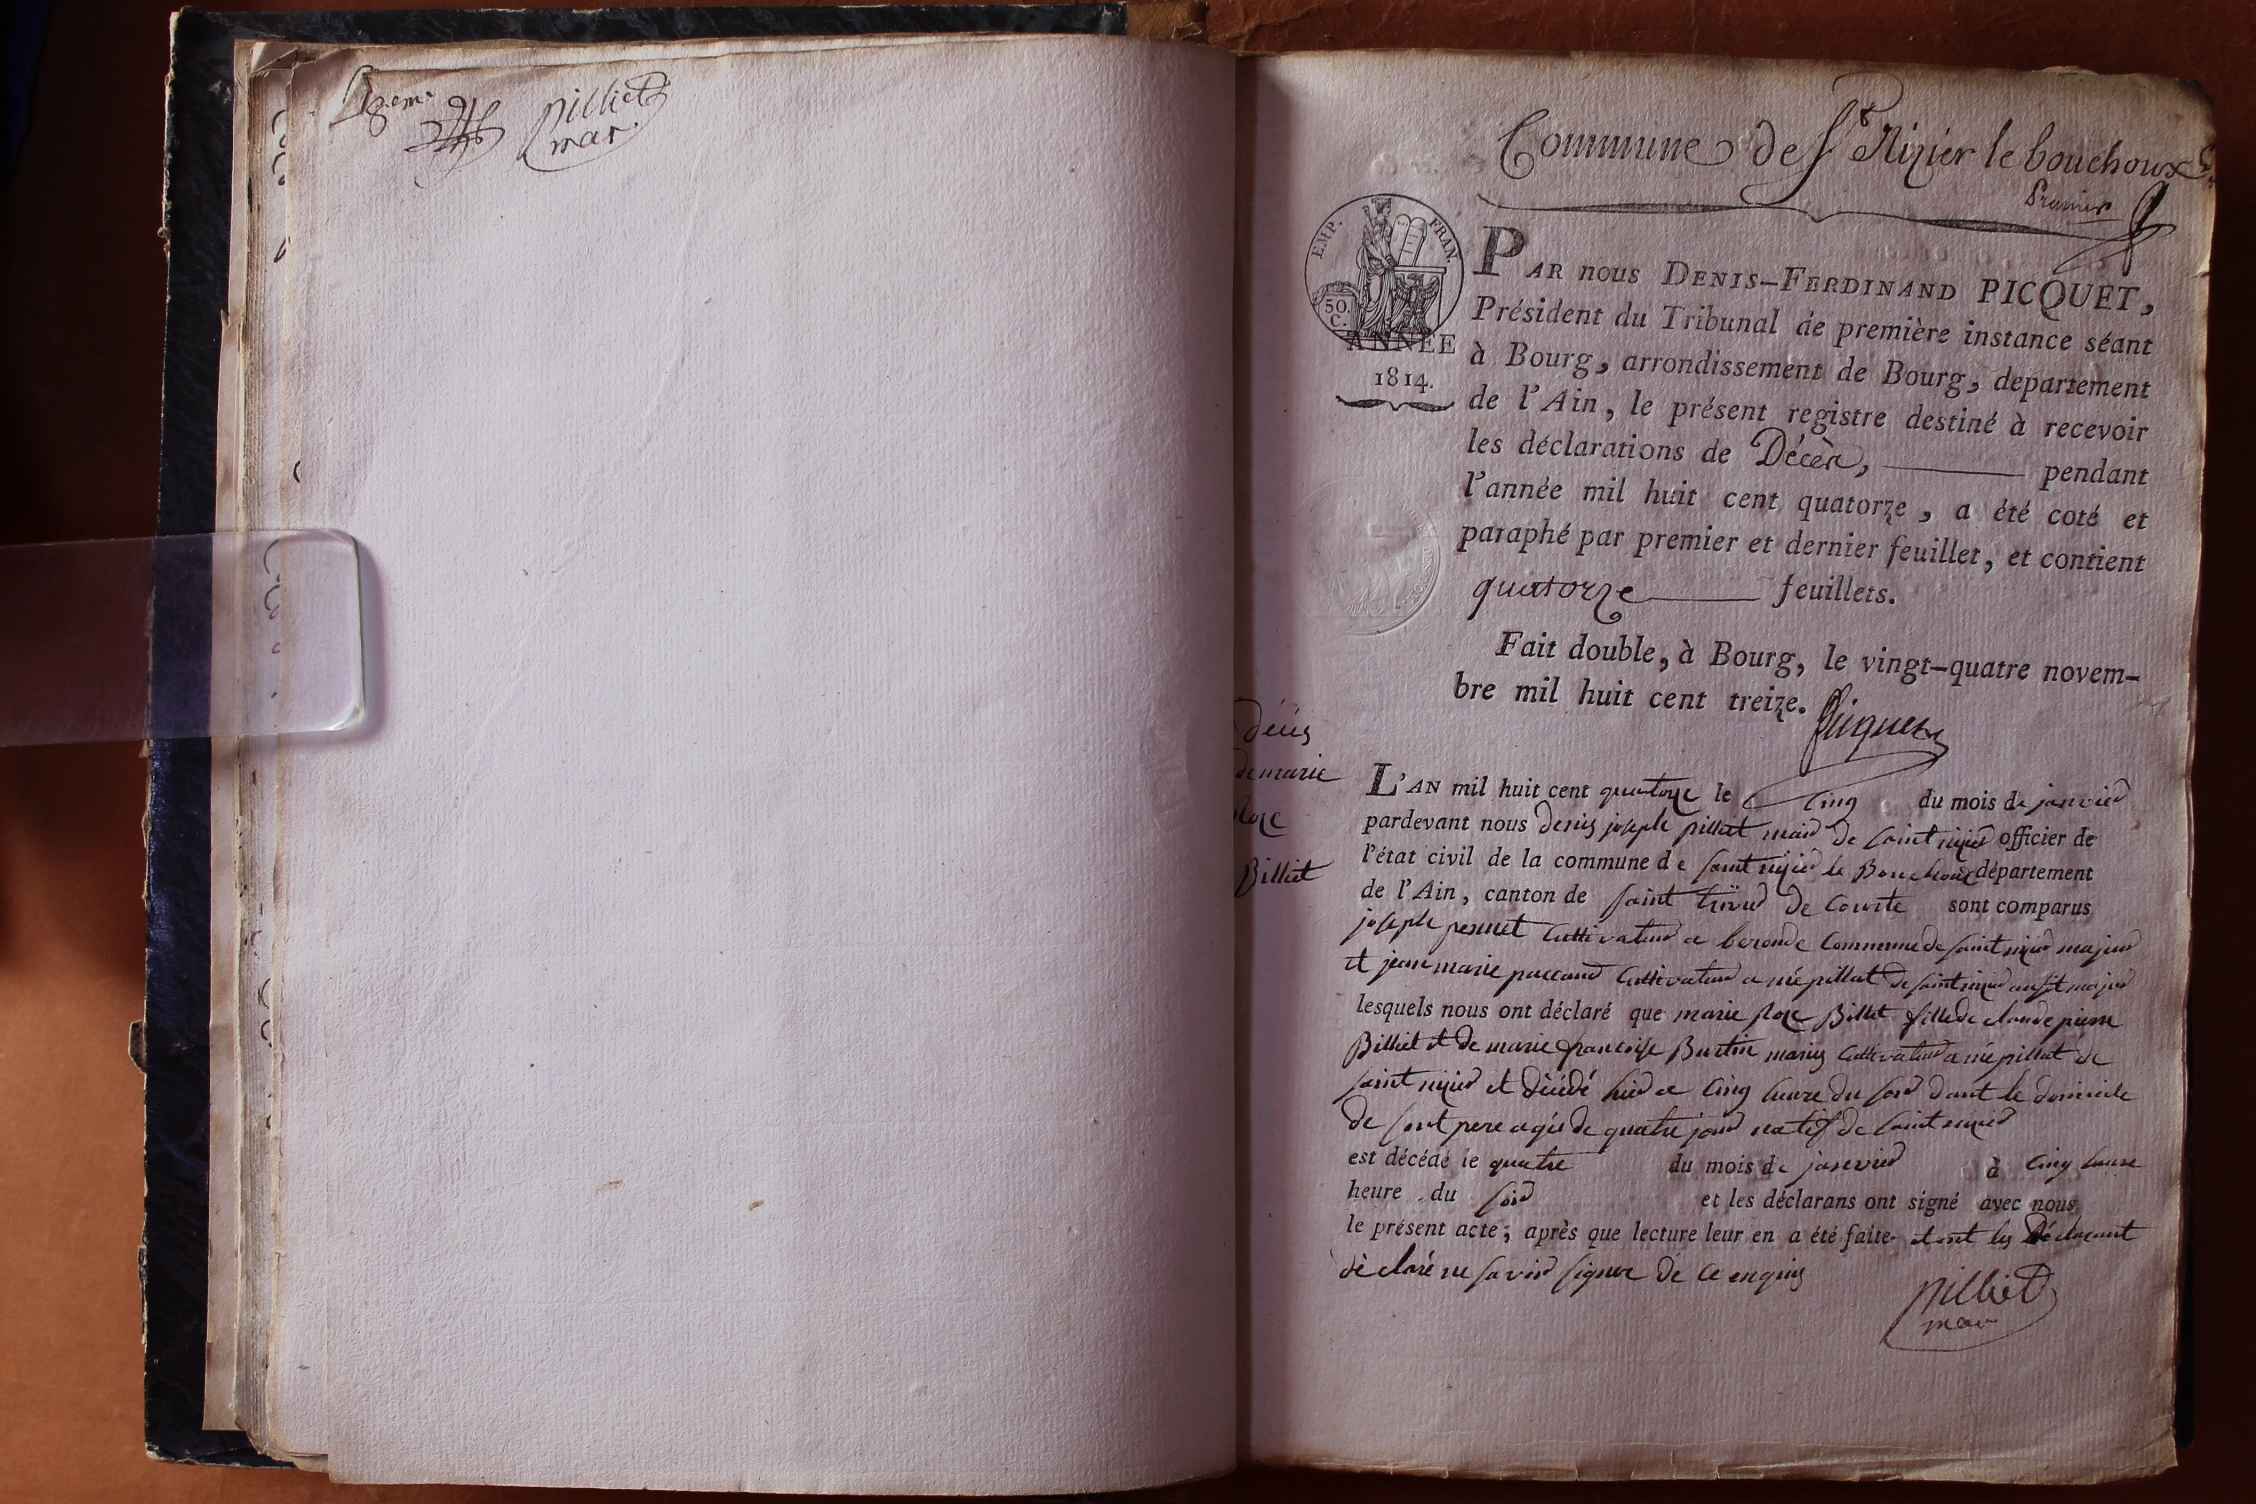 18.eme
pilliet
mar.
Commune de St Nizier le bouchoux
Premier
EMP. FRAN.
50. C.
ANNÉE
1814.
PAR nous DENIS-FERDINAND PICQUET,
Président du Tribunal de première instance séant
à Bourg, arrondissement de Bourg, departement
de l'Ain, le présent registre destiné à recevoir
les déclarations de Décès, pendant
l'année mil huit cent quatorze, a été coté et
paraphé par premier et dernier feuillet, et contient
quatorze feuillets.
Fait double, à Bourg, le vingt-quatre novem-
bre mil huit cent treize.
Picquet
déces
de marie
Roze
Billiet
L'AN mil huit cent quatorze le cinq du mois de janvier
pardevant nous denis joseph pilliat maire de saint nizier officier de
l'état civil de la commune de saint nizier le Bouchoux département
de l'Ain, canton de saint trivier de Courte sont comparus
joseph cultivateur a commune de saint nizier majeur
et jean marie cultivateur a de saint nizier majeur
lesquels nous ont déclaré que marie Roze Billiet fille de claude pierre
Billiet et de marie françoise mariés cultivateur a de
saint nizier et décédé hier a cinq heure du soir dant le domicile
de sont pere agée de quatre jour natif de saint nizier
est décédé le quatre du mois de janvier à cinq heure
heure du soir et les déclarans ont signé avec nous
le présent acte; après que lecture leur en a été faite et ont les déclarant
déclaré ne savoir signer de ce enquis
pilliet
mar